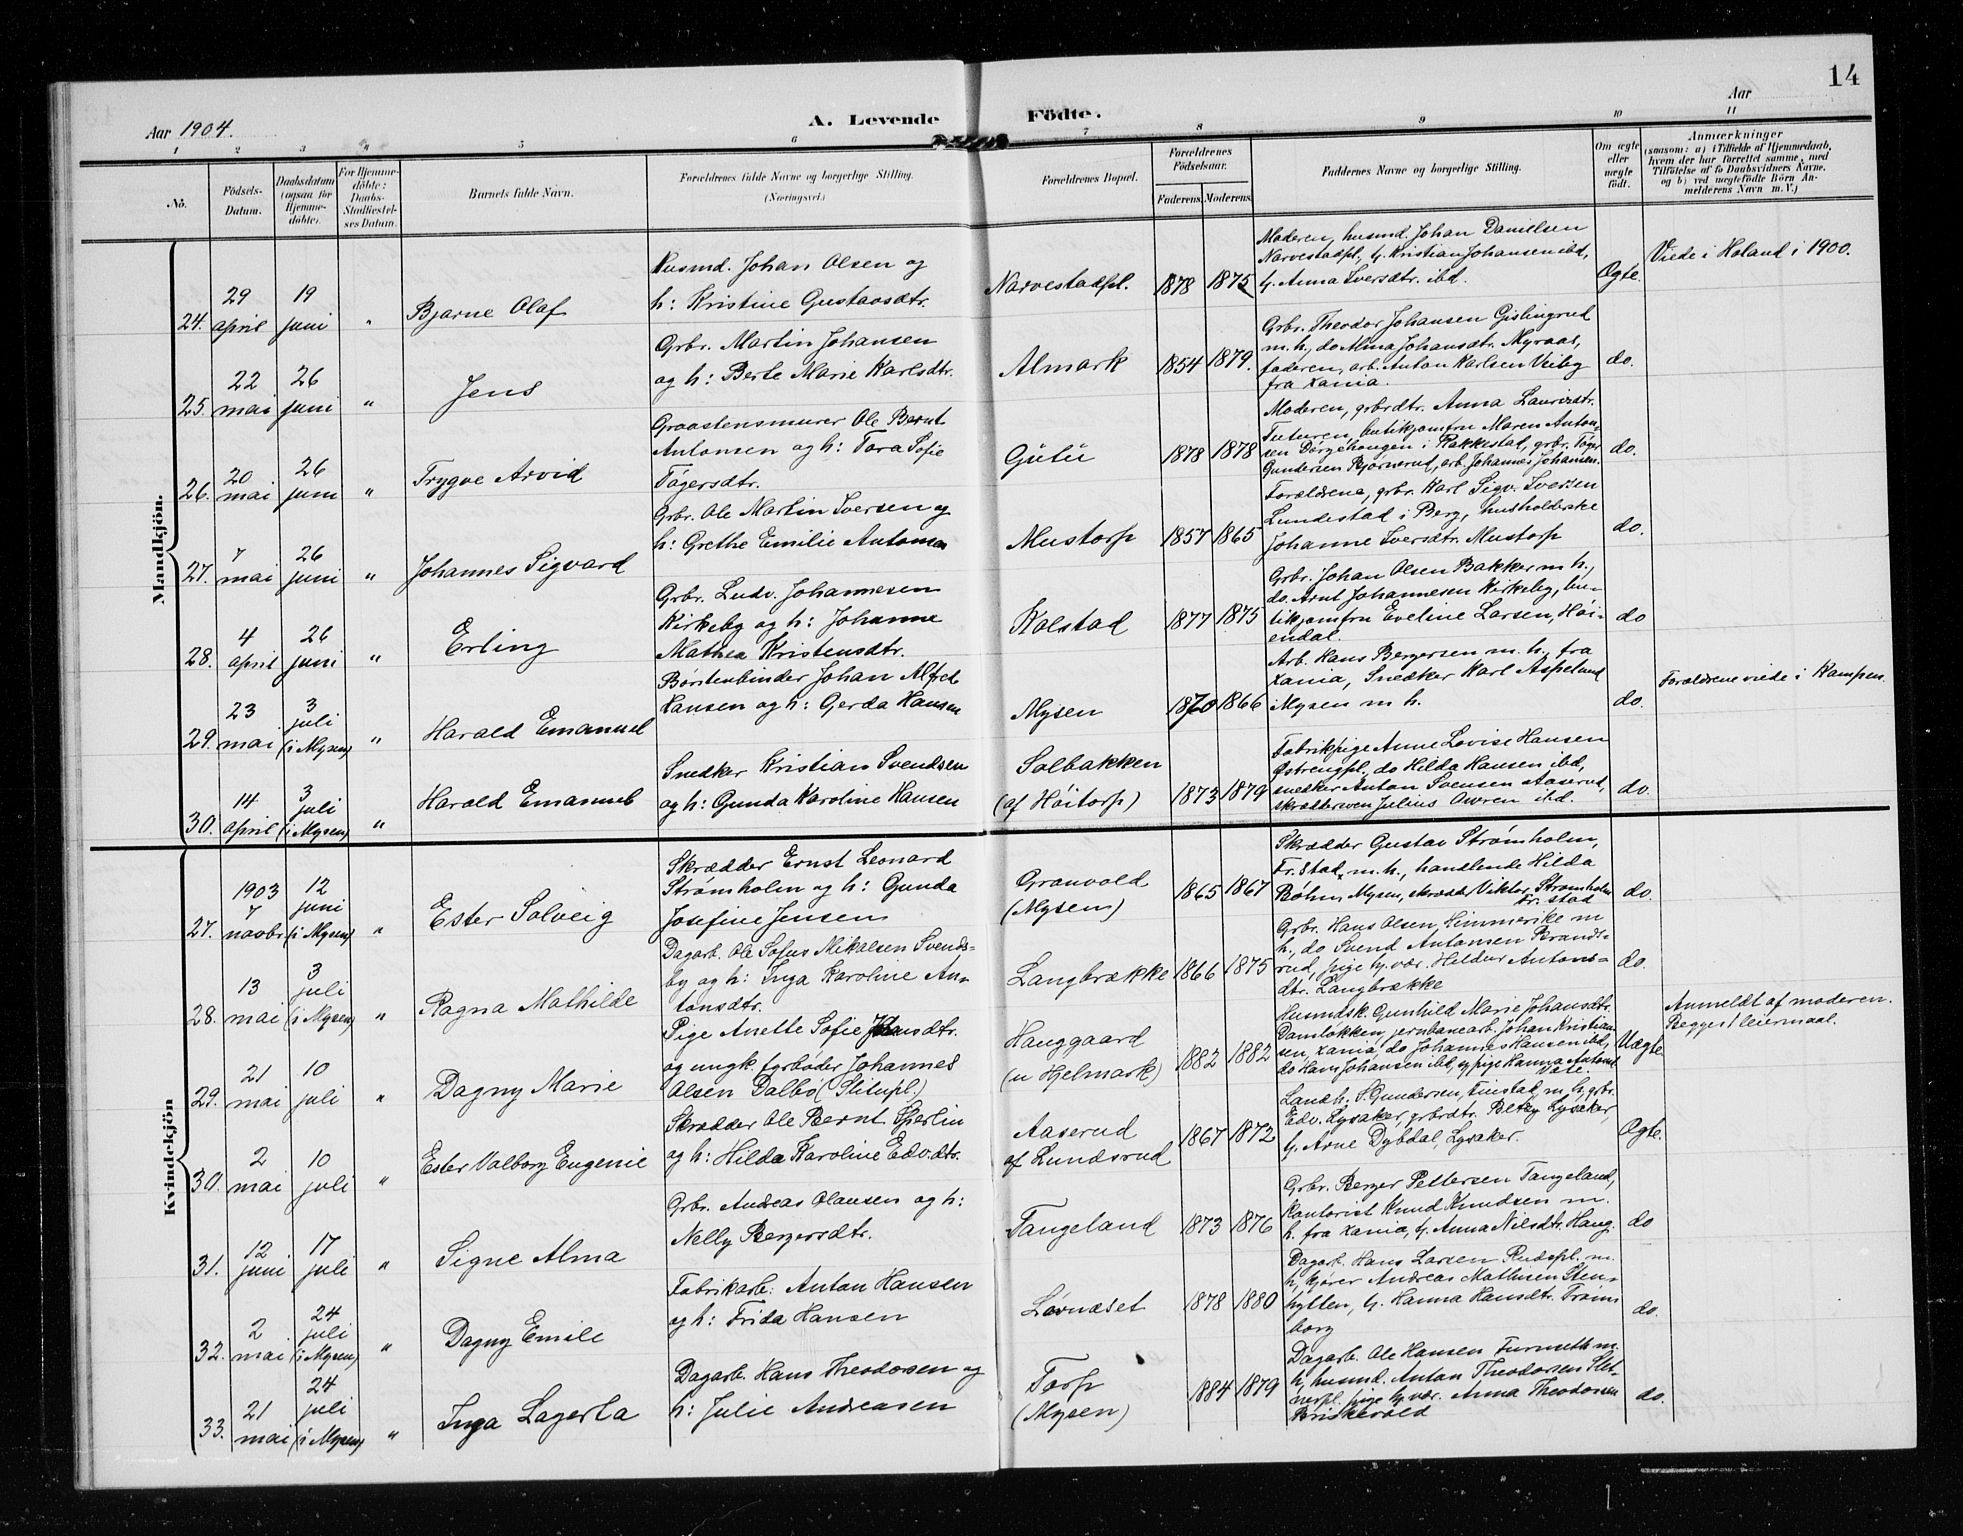 14
Aar 1904.
A. Levende
Födte.
Aar
1 2 3 4 5 6 7 8 9 10 11
No.
Födsels-
Datum.
Daabsdatum
(ogsaa for
Hjemme-
döbte).
For Hjemme-
döbte:
Daabs-
Stadfæstel-
ses Datum.
Barnets fulde Navn.
Forældrenes fulde Navne og borgerlige Stilling.
(Næringsvei.)
Forældrenes Bopæl.
Forældrenes
Födselsaar.
Faderens. Moderens.
Faddernes Navne og borgerlige Stilling.
Om ægte
eller
uægte
födt.
Anmærkninger
(saasom: a) i Tilfælde af Hjemmedaab,
hvem der har forrettet samme, med
Tilföielse af to Daabsvidners Navne.
og b) ved uægtefödte Börn An-
melderens Navn m. V.)
Mandkjön.
24.
29
april
19
juni
"
Bjarne Olaf
Husmd. Johan Olsen og
h: Kristine Gustavsdtr.
Narvestadpl.
1878
1875
Moderen, husmd. Johan Danielsen
Narvestadpl, G. Kristian Johansen ibd,
G. Anna Iversdtr. ibd.
Ægte.
Viede i Høland i 1900.
25.
22
mai
26
juni
"
Jens
Grbr. Martin Johansen
og h: Berte Marie Karlsdtr.
Almark
1854
1879.
Grbr. Theodor Johansen Gislingrud
m. h., do Alma Johansdtr. Myraas,
faderen, arb. Anton Karlsen Veiby
fra Xania.
do.
26.
20
mai
26
juni
"
Trygve Arvid
Graastensmurer Ole Bernt
Antonsen og h: Tora Sofie
Tøgersdtr.
Gütü
1878
1878
Moderen, grbrdtr. Anna Lauritzdtr.
Tuturen, butikjomfru Maren Anton-
sen Dørgehougen i Rakkestad, grbr. Tøger
Gundersen Bjørnerud, arb. Johannes Johansen.
do.
27.
7
mai
26
juni
"
Johannes Sigvard
Grbr. Ole Martin Iversen og
h: Grethe Emilie Antonsen
Mustorp
1857
1865
Forældrene, grbr. Karl Sigv. Iversen
Lundestad i Berg, husholderske
Johanne Iversdtr. Mustorp
do.
28.
4
april
26
juni
"
Erling
Grbr. Ludv. Johannesen
Kirkeby og h: Johanne
Mathea Kristensdtr.
Kolstad
1877
1875
Grbr. Johan Olsen Bakker m h,
do. Arnt Johannesen Kirkeby, bu-
tikjomfru Eveline Larsen, Høi-
endal.
do
29.
23
mai
3
juli
(i Mysen)
"
Harald Emanuel
Børstenbinder Johan Alfred
Hansen og h: Gerda Hansen
Mysen
1870
1866
Arb. Hans Bergersen m. h, fra
Xania, Snedker Karl Aspelund
Mysen m h.
do.
Forældrene viede i Kampen.
30.
14
april
3
juli
(i Mysen)
"
Harald Emanuel
Snedker Kristian Svendsen
og h: Gunda Karoline Hansen
Solbakken
(af Höitorp)
1873
1879
Fabrikpige Anne Lovise Hansen
Østrengpl, do Hilda Hansen ibd,
snedker Anton Svensen Aaserud,
skræddersven Julius Owren ibd.
do.
Kvindekjön
27.
1903
7
novbr
12
juni
(i Mysen)
"
Ester Solveig
Skrædder Ernst Leonard
Strømholm og h: Gunda
Josefine Jensen
Granvold
(Mysen)
1865
1867
Skrædder Gustav Strømholm,
Fr.stad, m. h., handlende Hilda
Bøhm, Mysen, skrædder Viktor Strømholm
Fr. stad
do.
28.
13
mai
3
juli
(i Mysen)
"
Ragna Mathilde
Dagarb. Ole Sofus Mikalsen Svends-
by og h: Inga Karoline An-
tonsdtr.
Langbrække
1866
1875
Grbr. Hans Olsen, Himmerike m
h, do Svend Antonsen Brands-
rud, pige G. vær. Heldur Antons-
dtr. Langbrække
do.
29.
21
mai
10
juli
"
Dagny Marie
Pige Anette Sofie Jensdtr.
og ungk. fyrbøder Johannes
Olsen Dalbø (Slitupl.)
Hauggaard
(u Hjelmark)
1882
1882
Husmdsk. Gunhild Marie Johansdtr.
Damløkken, jernbanearb. Johan Kristian-
sen, Xania, do Johannes Hansen ibd,
do Hans Johansen ibd, G. pige Hanna Antonsd
Uægte.
Anmeldt af moderen.
Begges 1 leiermaal.
30.
2
mai
10
juli
"
Ester Valborg Eugenie
Skrædder Ole Bernt Sperlin
og h: Hilda Karoline Edv.dtr.
Aaserud
af Lundsrud
1867
1872
Landh. S. Gundersen, Finstad, m h, grbr.
Edv. Lysaker, grbrdtr. Betzy Lysaker,
G. Arne Dybdal, Lysaker.
Ægte.
31.
12
juni
17
juli
"
Signe Alma
Grbr. Andreas Olausen og h:
Nelly Bergersdtr.
Tangeland
1873
1876
Grbr. Berger Pettersen Tangeland,
kontorist Knud Knudsen m.
h. fra Xania, G. Anna Nilsdtr. Haug.
do
32.
2
mai
24
juli
(i Mysen)
"
Dagny Emile
Fabrikarb. Anton Hansen
og h: Frida Hansen
Løvnæset
1878
1880
Dagarb. Hans Larsen Rudspl. m.
h, kjører Andreas Mathisen Sten-
hytten, G. Hanna Hansdtr. Tram-
borg
do.
33.
21
mai
24
juli
(i Mysen)
"
Inga Lagerta
Dagarb. Hans Theodorsen og
h: Julie Andreasen
Torp
(Mysen)
1884
1879
Dagarb. Ole Hansen Furuseth m.
h, husmd. Anton Theodorsen Slet-
nerpl. pige G. vær. Anna Theodorsen
Briskevold
do.